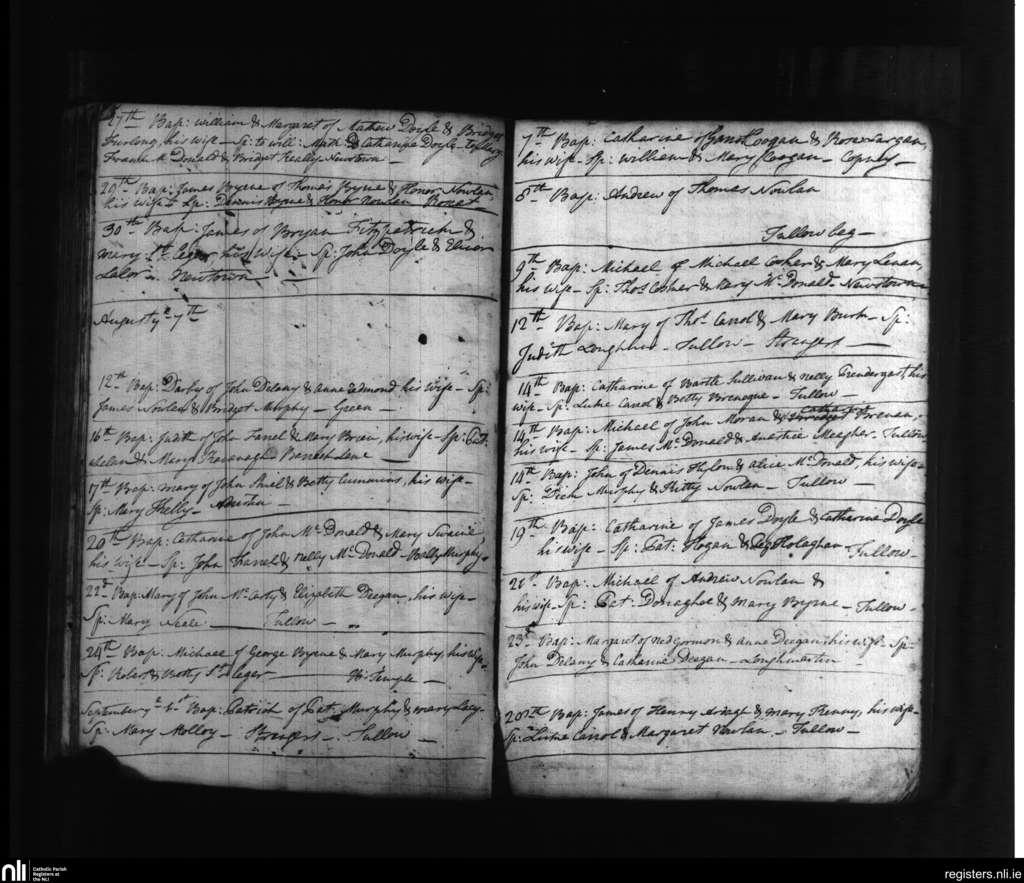 27th Bap: William & Margaret of Mathew Doyle & Bridget
Furlong, his wife - Sp: to will: Math & Catharine Doyle -
Frank Mc Donald & Bridget Kealy Newtown -
20th Bap: James Byrne of Thomas Byrne & Honor Nowlan
his wife - Sp: Dennis Byrne & Honor Nowlan
30th Bap: James of Bryan Fitzpatrick &
Mary St. Leger his Wife - Sp: John Doyle &
Lalor - Newtown
August ye 7th
12th Bap: Darby of John Delany & Anne Redmond his wife - Sp:
James Nowlan & Bridget Murphy - Green -
16th Bap: Judith of John & Mary Brien, his wife - Sp: Pat:
& Mary Kavanagh Lane
17th Bap: Mary of John & Betty Cummins, his wife -
Sp: Mary -
20th Bap: Catharine of John Mc Donald & Mary
his wife - Sp: John Farrel & Nelly Mc Donald - Ballymurphy
22d Bap: Mary of John Mc Carty & Elizabeth Deegan, his wife -
Sp: Mary Neale - Tullow -
24th Bap: Michael of George Byrne & Mary Murphy, his wife -
Sp: Robert & Betty St. Leger - Temple -
September ye Bap: Patrick of Pat. Murphy & Mary Lacy -
Sp: Mary Molloy - Strangers - Tullow -
7th Bap: Catharine of Coogan & Rose Fargan,
his wife - Sp: William & Mary Coogan -
8th Bap: Andrew of Thomas Nowlan
Tullow beg -
9th Bap: Michael of Michael Cosher & Mary
his wife - Sp: Thos Cosher & Mary Mc Donald - Newstown
12th Bap: Mary of Thos Carrol & Mary Burk - Sp:
Judith - Tullow - Strangers -
14th Bap: Catharine of Bartle Sullivan & Nelly Prendergast, his
wife - Sp: Luke Carrol & Betty - Tullow -
14th Bap: Michael of John Moran & Brenan,
his wife - Sp: James Mc Donald & Meagher - Tullow
14th Bap: John of Dennis & Alice Mc Donald, his wife -
Sp: Dick Murphy & Kitty Nowlan - Tullow -
19th Bap: Catharine of James Doyle & Catharine Doyle
his wife - Sp: Pat: Hogan & Tullow -
21st Bap: Michael of Andrew Nowlan &
his wife - Sp: Pat: Donaghoe & Mary Byrne - Tullow -
23d Bap: Margaret of Ned Gormon & Anne Deegan his wife - Sp:
John Delany & Catharine Deegan -
20th Bap: James of Henry & Mary Kenny, his wife -
Sp: Luke Carrol & Margaret Nowlan - Tullow -
nli
Catholic Parish
Registers at
the NLI
registers.nli.ie